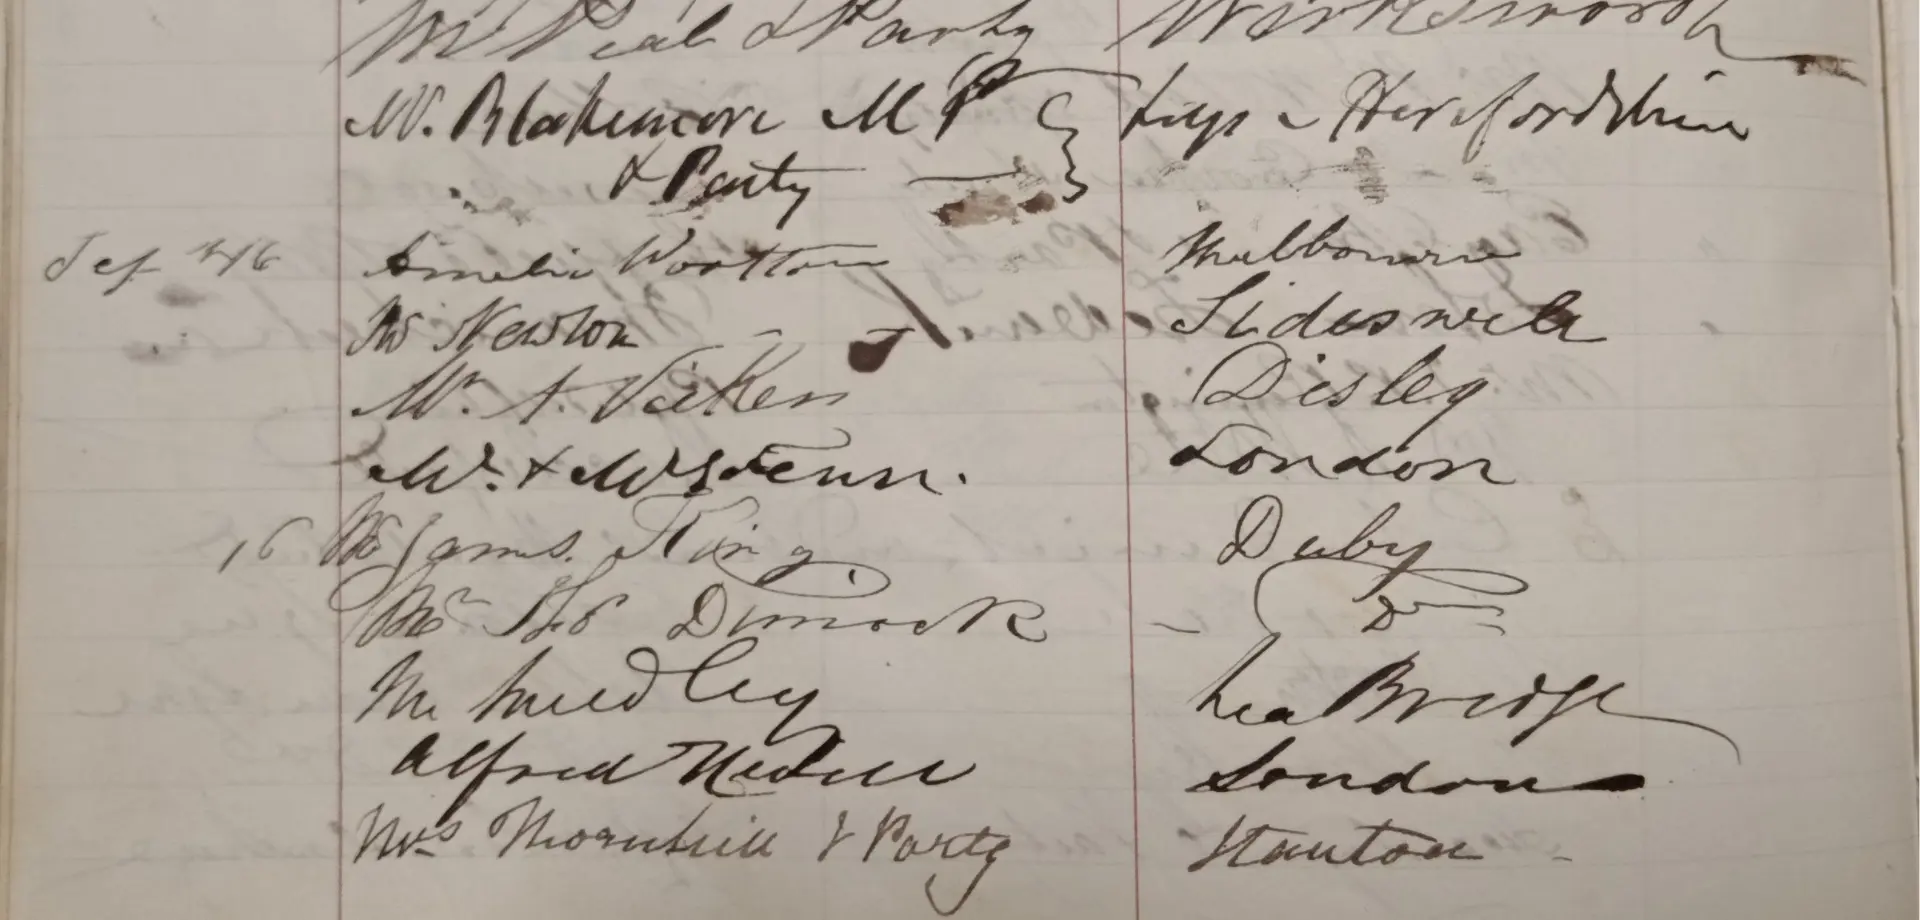 Mr Peal & Party Wirksworth
W. Blakemore MP Leys - Herefordshire
& Party
Sep 16 Amelia Wootton Melbourne
Mr Newton Tideswell
Mr. A. Vicken Disley
Mr. & Mrs Fenn. London
16 Mr James. King Derby
Mr Dimock Do
Mr Smedley Lea Bridge
Alfred London
Mrs Thornhill & Party Stanton